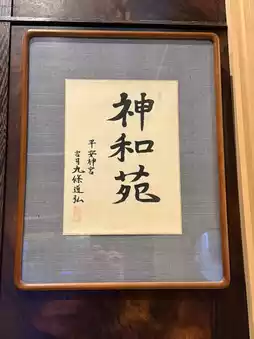 神和苑
平安神宮
宮司九條道弘